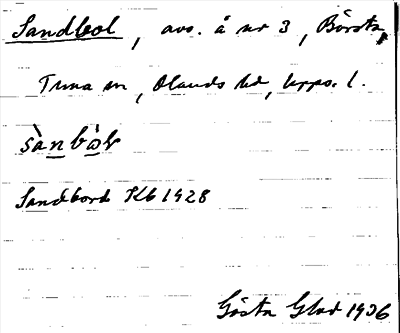 Sandbol, avs. å nr 3, Börsta,
Tuna sn, Olands hd, Upps. l.
sànbòl
Sandbord Kb 1928
Gösta Glad 1936